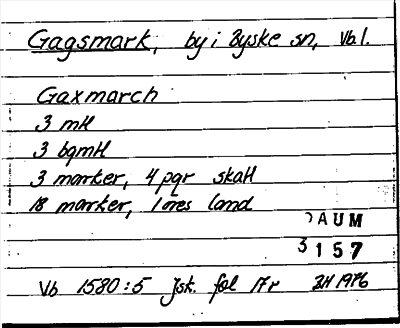 Gagsmark, by i Byske sn, Vb l.
Gaxmarch
3 mtl
3 bgmtl
3 marker, 4 pgr skatt
18 marker, 1 öres land
DAUM
3157
Vb 1580:5 Jsk. fol 17r 2H 1976